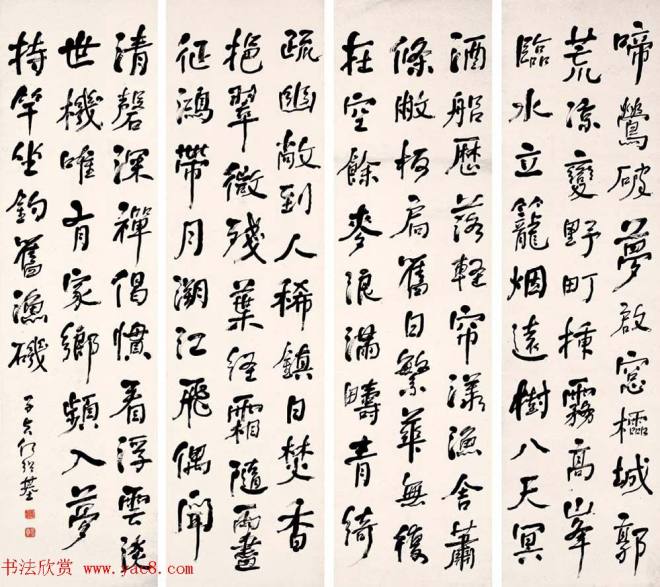 啼鶯破夢啟窓櫺城郭
荒凉變野町揷霧高峯
臨水立籠烟遠樹入天冥
酒船歷落輕帘漾漁舍蕭
條敝板扃舊日繁華無復
在空餘麥浪滿疇青綺
疏幽敞到人稀鎮日焚香
挹翠微殘葉經霜隨雨盡
征鴻帶月溯江飛偶聞
清磬深禪偈慣看浮雲
世機唯有家鄉頻入夢
持竿坐釣舊漁磯
子貞何紹基
书法欣赏 www.yac8.com